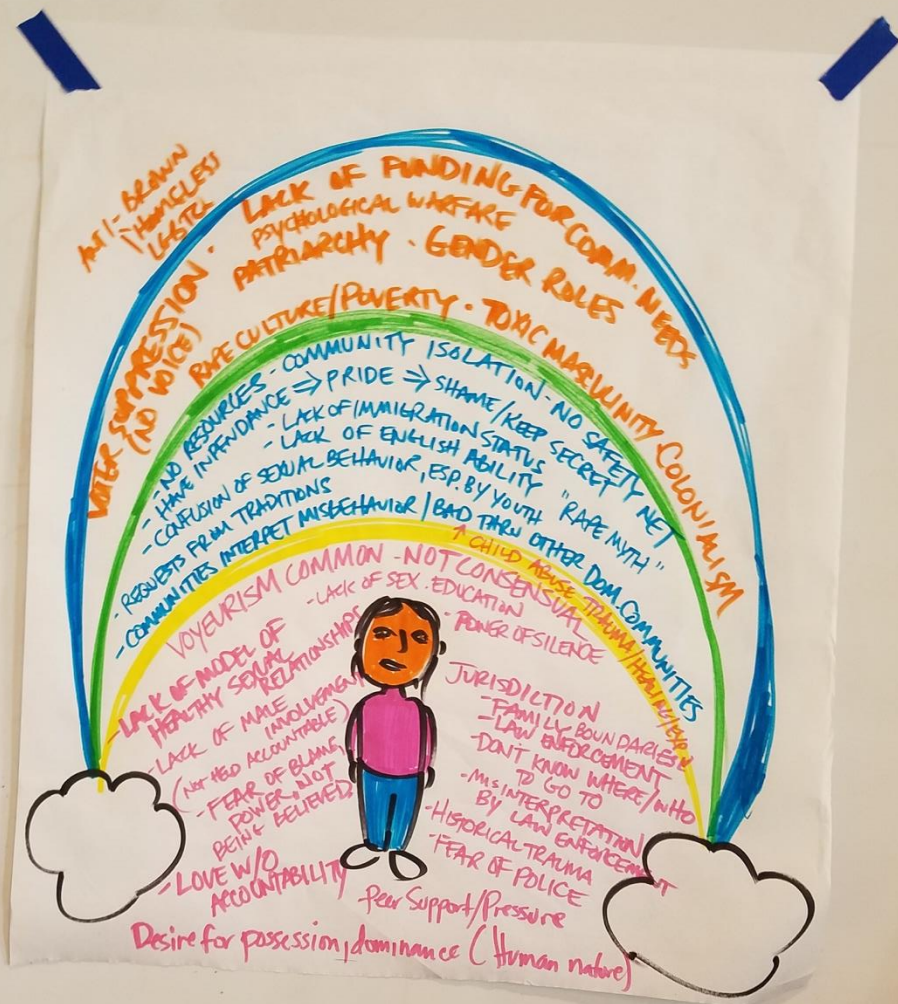 ANTI- BROWN
HOMELESS
LGBTQ
VOTER SUPPRESSION · LACK OF FUNDING FOR COMM. NEEDS
(NO VOICE)
PSYCHOLOGICAL WARFARE
PATRIARCHY · GENDER ROLES
RAPE CULTURE/POVERTY · TOXIC MASCULINITY · COLONIALISM
- NO RESOURCES - COMMUNITY ISOLATION - NO SAFETY NET
- HAVE INPENDANCE ⇒ PRIDE ⇒ SHAME/KEEP SECRET
- LACK OF IMMIGRATION STATUS
- LACK OF ENGLISH ABILITY "RAPE MYTH"
- CONFUSION OF SEXUAL BEHAVIOR, ESP. BY YOUTH
- REQUESTS FROM TRADITIONS
- COMMUNITIES INTERPET MISBEHAVIOR/BAD THAN OTHER DOM. COMMUNITIES
↑ CHILD ABUSE TRAUMA/HEALING/EXP.
VOYEURISM COMMON - NOT CONSENSUAL
- LACK OF SEX. EDUCATION
- POWER OF SILENCE
- LACK OF MODEL OF
HEALTHY SEXUAL
RELATIONSHIPS
- LACK OF MALE
INVOLVEMENT
(NOT HELD ACCOUNTABLE)
- FEAR OF BLAME,
POWER, NOT
BEING BELIEVED
- LOVE W/O
ACCOUNTABILITY
JURISDICTION
- FAMILY BOUNDARIES
- LAW ENFORCEMENT
- DON'T KNOW WHERE/WHO
TO GO TO
- MISINTERPRETATION
BY LAW ENFORCEMENT
- HISTORICAL TRAUMA
- FEAR OF POLICE
Peer Support/Pressure
Desire for possession, dominance (Human nature)